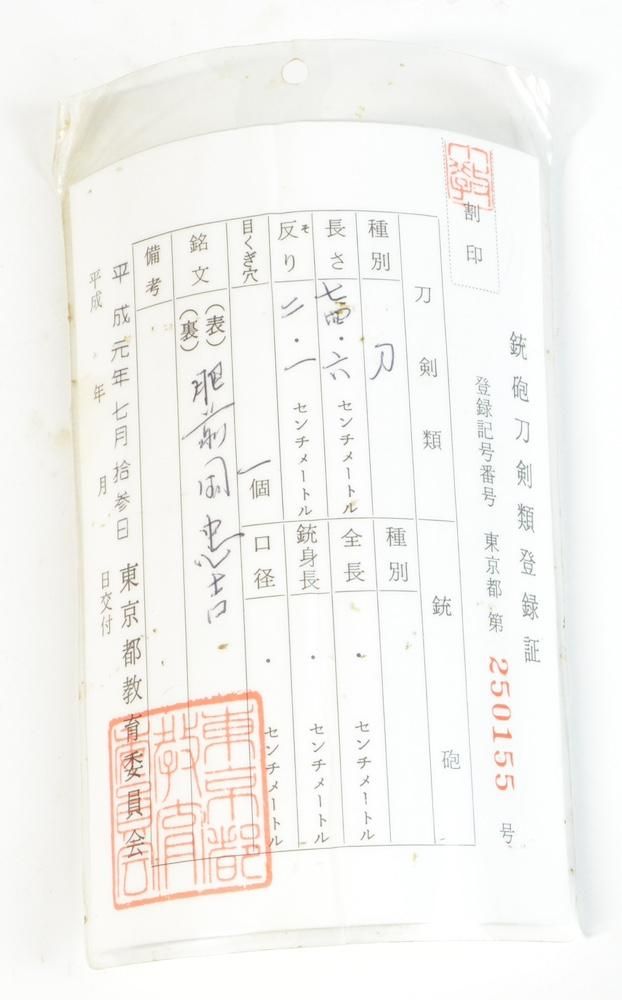 銃砲刀剣類登録証
登録記号番号 東京都 第 250155 号
割印
刀剣類
銃砲
種別 刀
種別
長さ 七四・六 センチメートル
全長 ・ センチメートル
反り そ 二・一 センチメートル
銃身長 ・ センチメートル
目くぎ穴 一個
口径 ・ センチメートル
銘文 (表) 肥前国忠吉
(裏)
備考
平成元年七月拾参日
平成 年 月 日交付
東京都教育委員会
東京都
教育
委員会